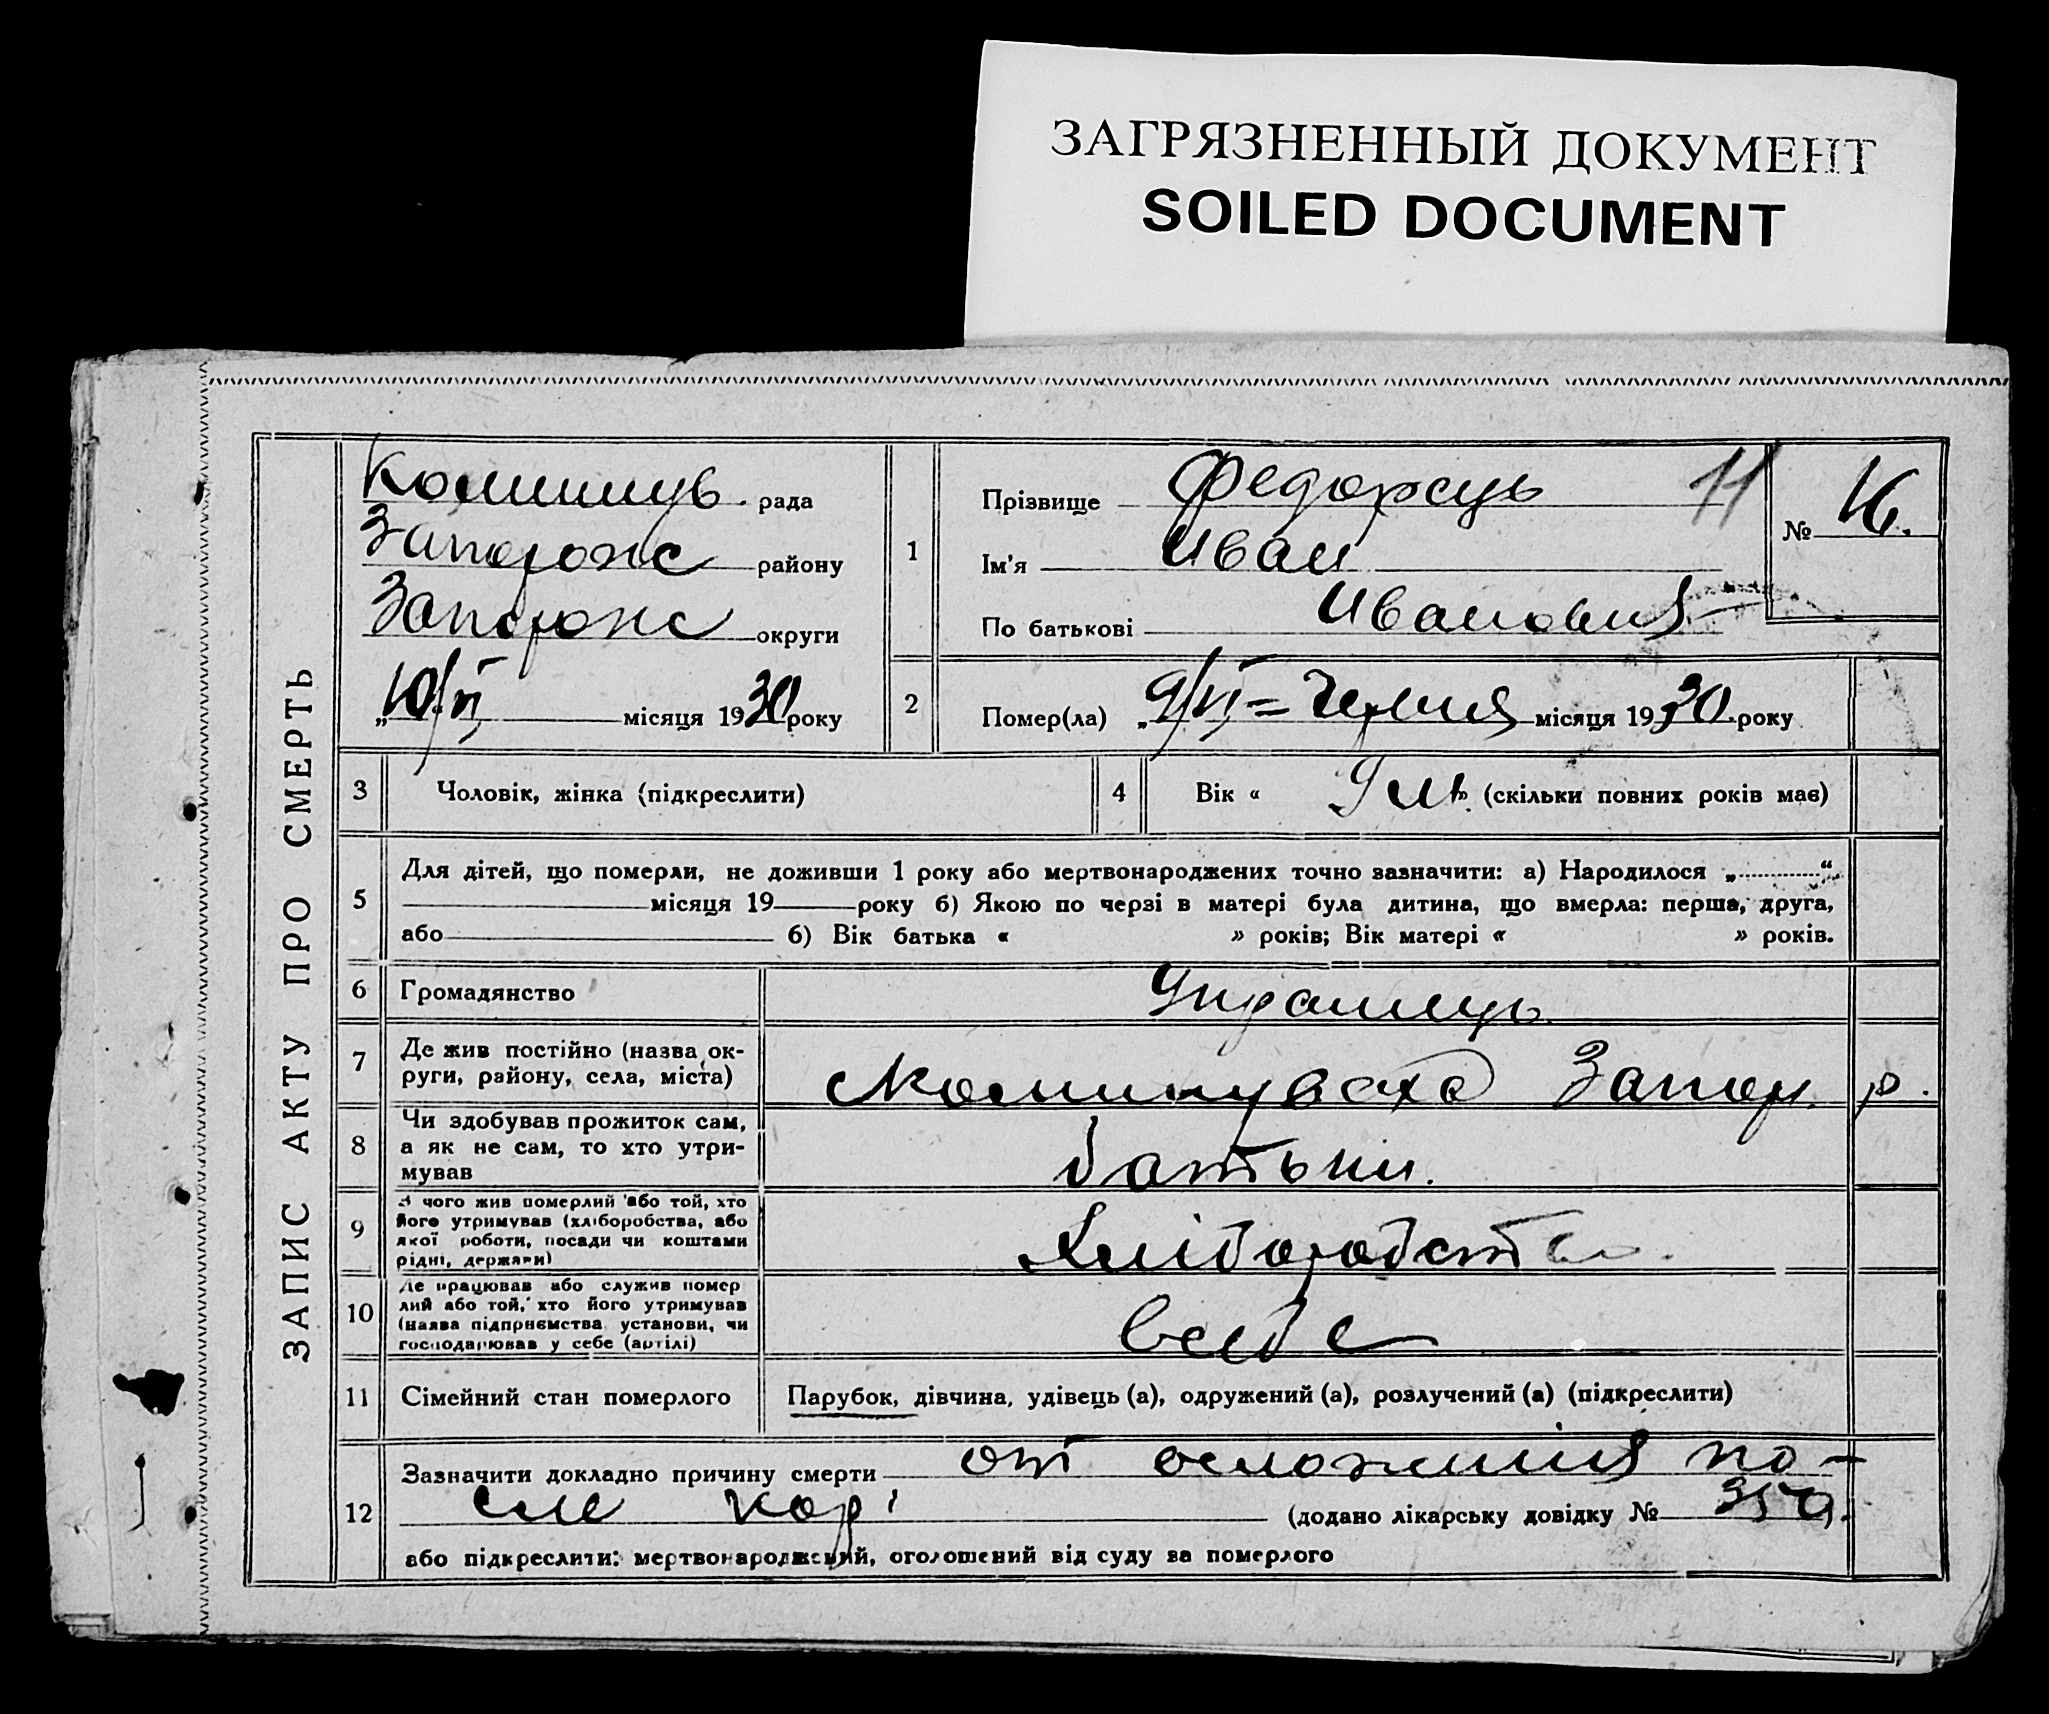 ЗАГРЯЗНЕННЫЙ ДОКУМЕНТ
SOILED DOCUMENT
ЗАПИС АКТУ ПРО СМЕРТЬ
Комишув. рада
Запорожс району
Запорожс округи
„10/VI місяця 1930 року
1
Прізвище Федорець 11
Ім'я Иван
По батькові Иванович
№ 16.
2
Помер(ла) „9/VI = Червня місяця 1930. року
3
Чоловік, жінка (підкреслити)
4
Вік « 9 » (скільки повних років має)
5
Для дітей, що померли, не доживши 1 року або мертвонароджених точно зазначити: а) Народилося „ “
місяця 19 року б) Якою по черзі в матері була дитина, що вмерла: перша, друга,
або б) Вік батька « » років; Вік матері « » років.
6
Громадянство Украинець
7
Де жив постійно (назва ок-
руги, району, села, міста)
Комишуваха Запор. р.
8
Чи здобував прожиток сам,
а як не сам, то хто утри-
мував
батьки.
9
З чого жив померлий або той, хто
його утримував (хліборобства, або
якої роботи, посади чи коштами
рідні, держави)
Хліборобство.
10
Де працював або служив помер
лий або той, хто його утримував
(назва підприємства установи, чи
господарював у себе (артілі)
в себе
11
Сімейний стан померлого
Парубок, дівчина, удівець (а), одружений (а), розлучений (а) (підкреслити)
12
Зазначити докладно причину смерти от осложнения по-
сле кори (додано лікарську довідку № 359.
або підкреслити: мертвонароджений, оголошений від суду за померлого